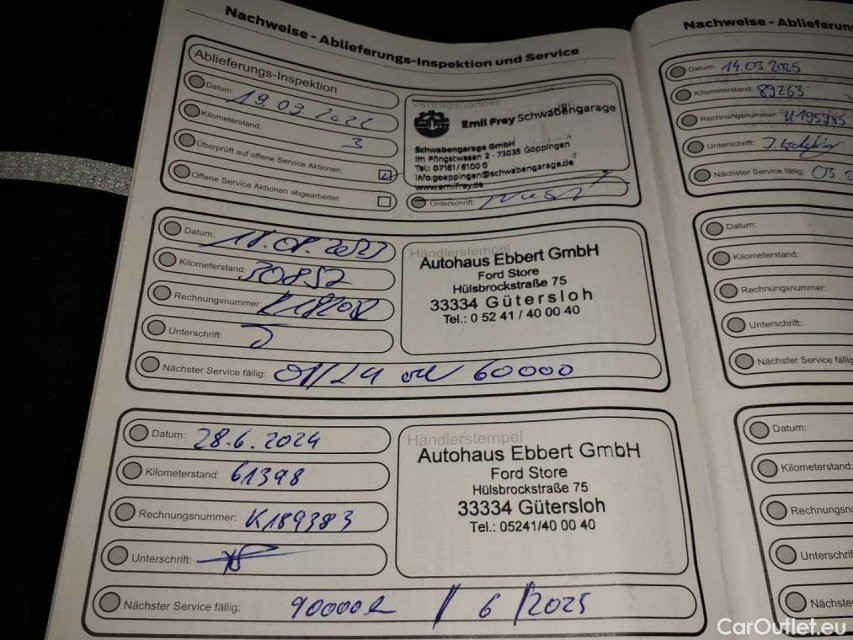 Nachweise - Ablieferungs-Inspektion und Service
Ablieferungs-Inspektion
Datum: 19.03.2022
Kilometerstand: 3
Überprüft auf offene Service Aktionen:
Offene Service Aktionen abgearbeitet:
Vertragspartner
Emil Frey Schwabengarage
Schwabengarage GmbH
Im Pfingstwasen 2 - 73035 Göppingen
Tel.: 07161/6100 0
info.goeppingen@schwabengarage.de
www.emilfrey.de
Unterschrift:
Datum:
Kilometerstand: 30852
Rechnungsnummer:
Unterschrift:
Nächster Service fällig: 01/24 od 60000
Händlerstempel
Autohaus Ebbert GmbH
Ford Store
Hülsbrockstraße 75
33334 Gütersloh
Tel.: 0 52 41 / 40 00 40
Datum: 28.6.2024
Kilometerstand: 61398
Rechnungsnummer: K189383
Unterschrift:
Nächster Service fällig: 90000 / 6/2025
Händlerstempel
Autohaus Ebbert GmbH
Ford Store
Hülsbrockstraße 75
33334 Gütersloh
Tel.: 05241/40 00 40
Nachweise - Ablieferun
Datum: 14.03.2025
Kilometerstand: 89263
Rechnungsnummer:
Unterschrift:
Nächster Service fällig: 03
Datum:
Kilometerstand:
Rechnungsnummer:
Unterschrift:
Nächster Service fällig
Datum:
Kilometerstand:
Rechnungsnum
Unterschrif
Nächste
CarOutlet.eu